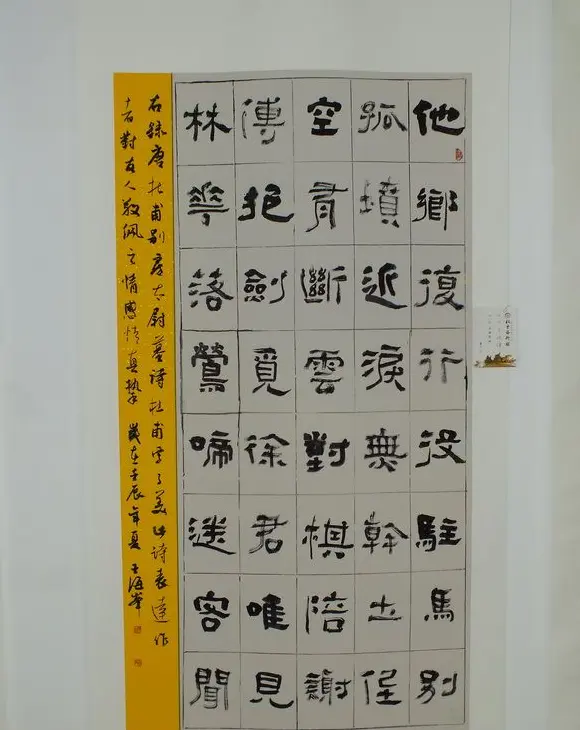 他鄉復行役駐馬别
孤墳近淚無幹土低
空有斷雲對棋陪謝
傅把劍覓徐君唯見
林花落鶯啼送客聞
右錄唐杜甫别房太尉墓诗杜甫寫了诗表達作
者對友人敬佩之情感情真摯 歲在壬辰年夏 王海峯